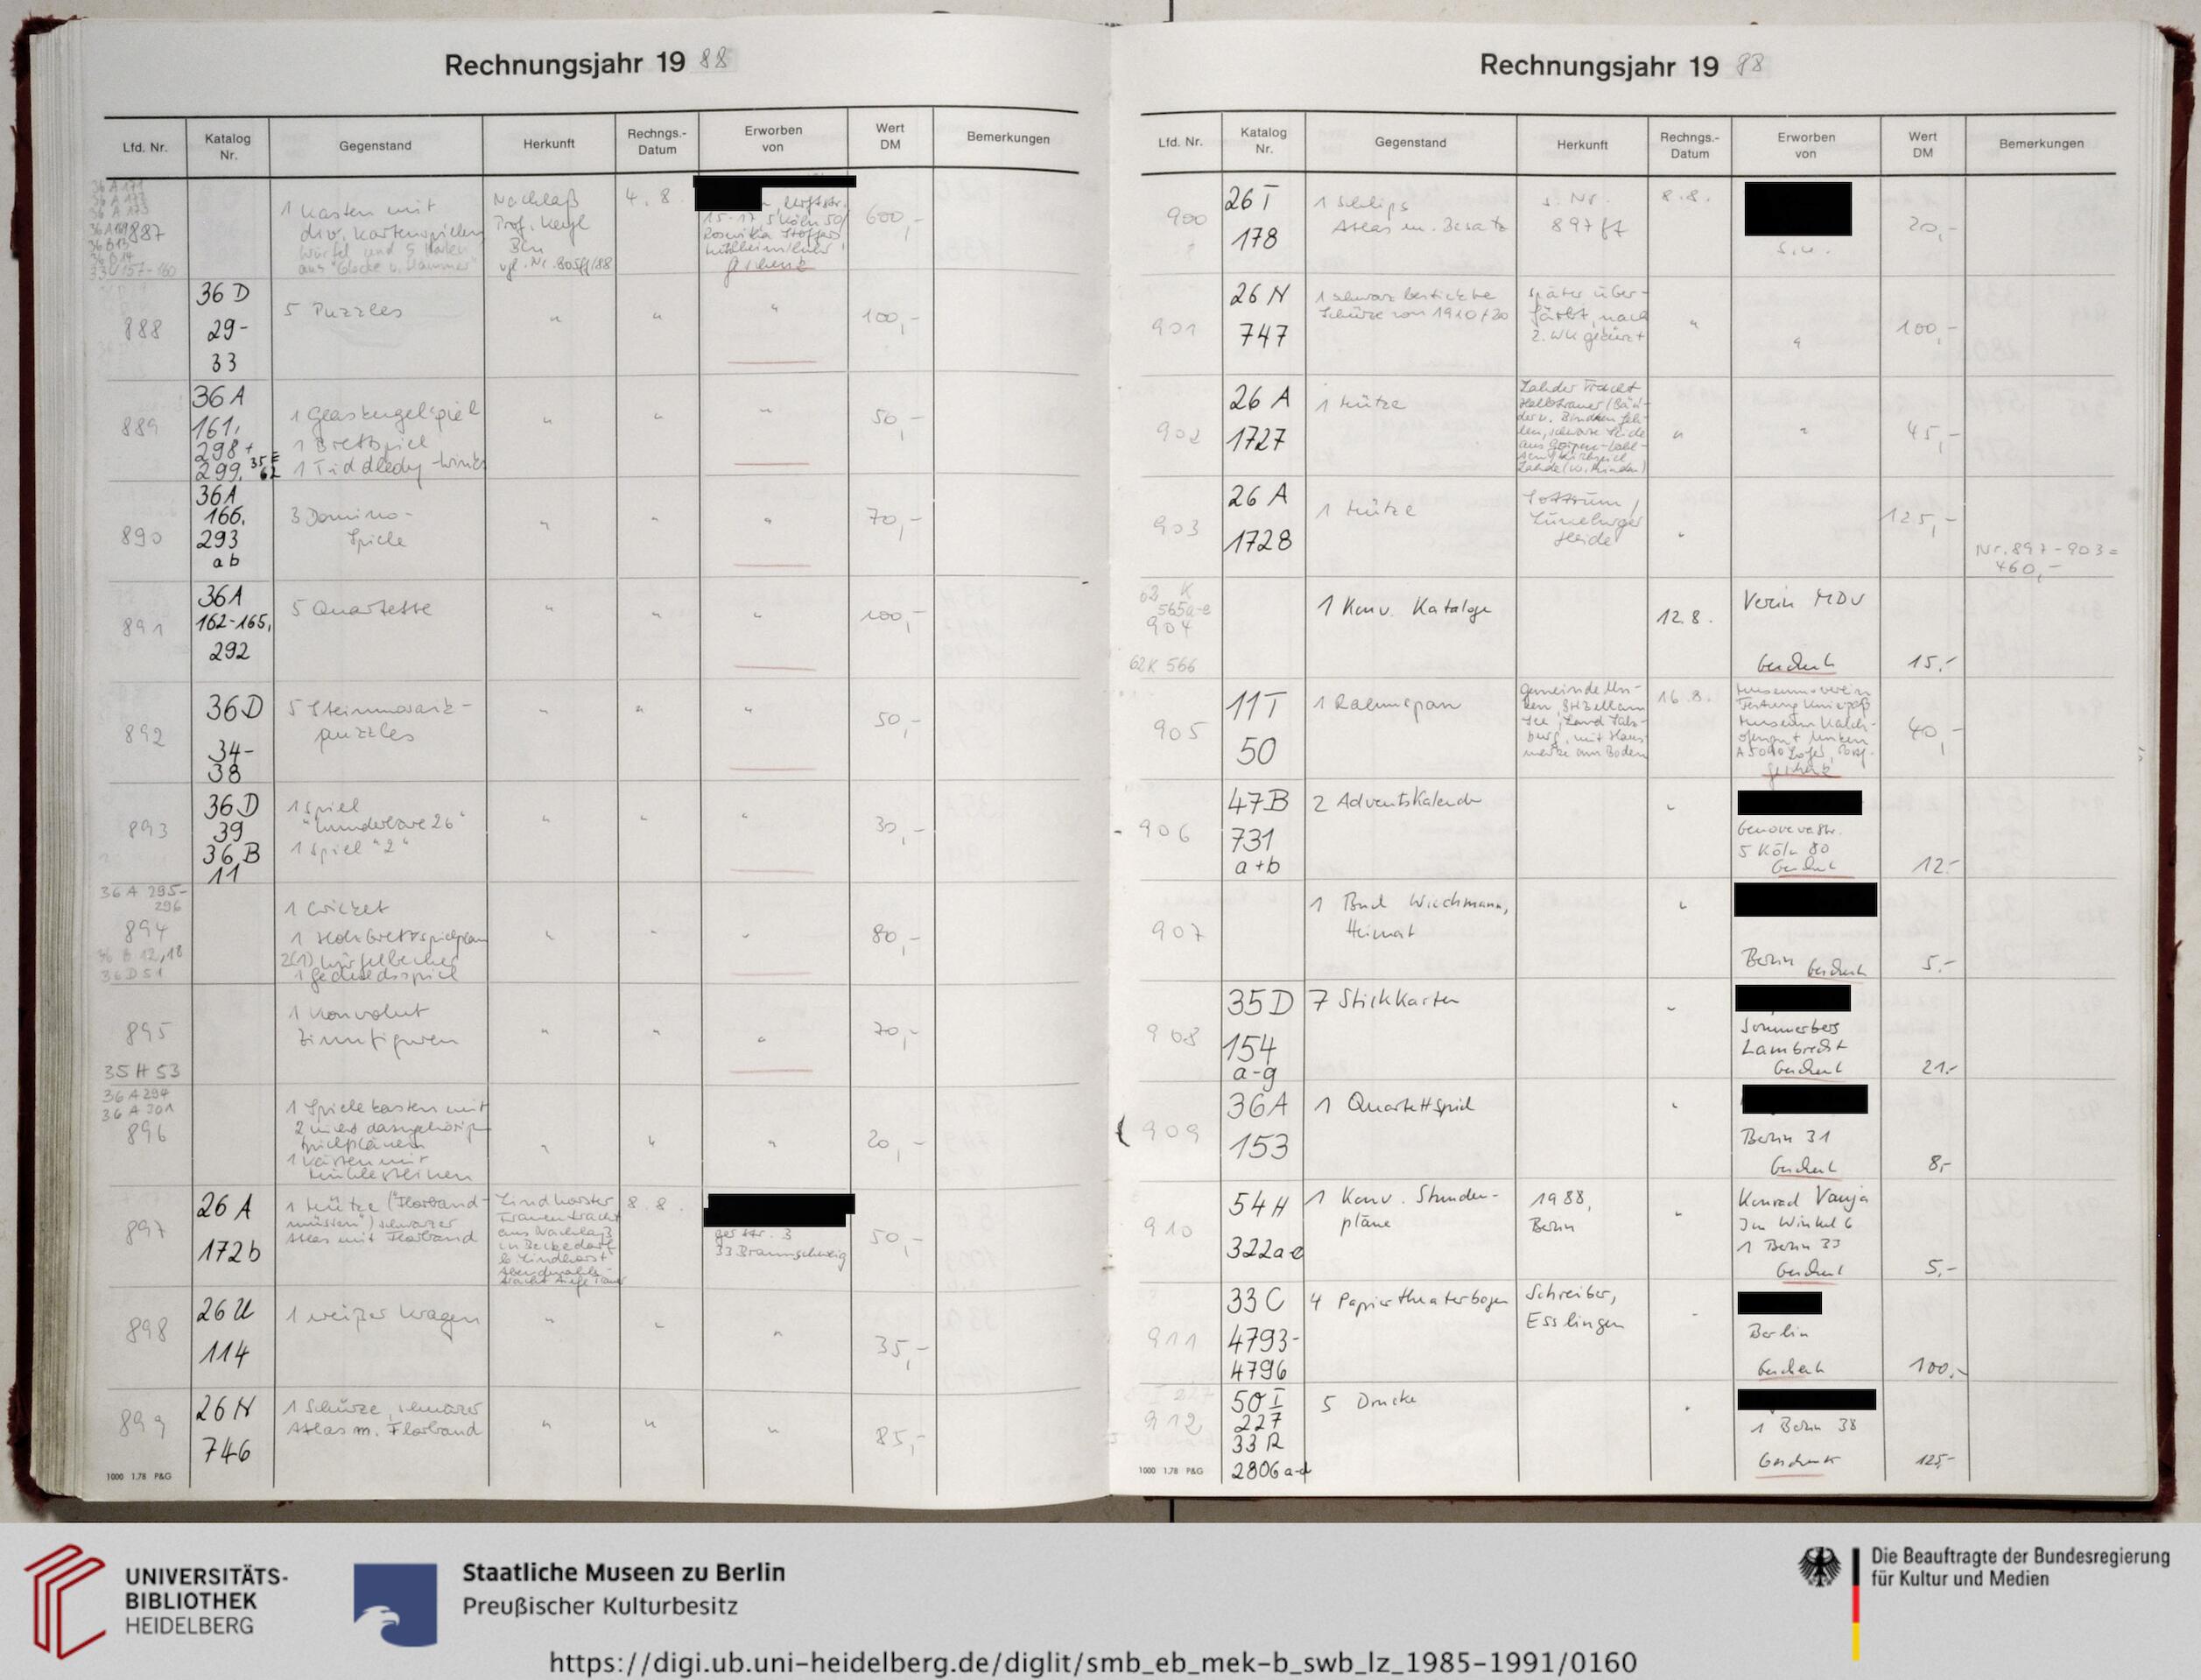 Rechnungsjahr 19 88
Lfd. Nr.
Katalog Nr.
Gegenstand
Herkunft
Rechngs.-Datum
Erworben von
Wert DM
Bemerkungen
36 A 171
36 A 173
887
36 B 14
33 C 157-160
1 Kasten mit
div. Kartenspielen
Würfel und 5 Karten
aus "Glocke u. Hammer"
Nachlaß
Prof. Kegl
Bln
vgl. Nr. 805ff/88
4. 8.
15-17, 5 Köln 50/
Geschenk
600,-
888
36 D
29-
33
5 Puzzles
"
"
"
100,-
889
36 A
161,
298+
299, 35 E
62
1 Glaskugelspiel
1 Brettspiel
1 Tiddledy-Winks
"
"
"
50,-
890
36A
166,
293
ab
3 Domino-
Spiele
"
"
"
70,-
891
36A
162-165,
292
5 Quartette
"
"
"
100,-
892
36D
34-
38
5 Steinmosaik-
puzzles
"
"
"
50,-
893
36D
39
36 B
11
1 Spiel
"Wunderbare 26"
1 Spiel "2"
"
"
"
30,-
36 A 295-
296
894
36 B 12, 18
36 D 51
1 Cricket
1 Holzbrettspielplan
2(1) Würfelbecher
1 Geduldsspiel
"
"
"
80,-
895
35 H 53
1 Konvolut
Zinnfiguren
"
"
"
70,-
36 A 294
36 A 301
896
1 Spielekasten mit
2 nicht dazugehörig
Spielplänen
1 Kasten mit
Mühlesteinen
"
"
"
20,-
897
26 A
172b
1 Mütze ("Florband-
müssen") schwarzer
Atlas mit Florband
Lindhorster
Frauentracht
aus Nachlaß
in Beckedorf
b. Lindhorst
Abendmahls-
tracht tiefe Trauer
8. 8.
ger Str. 3
33 Braunschweig
50,-
898
26 U
114
1 weißer Kragen
"
"
"
35,-
899
26 N
746
1 Schürze, schwarzer
Atlas m. Florband
"
"
"
85,-
1000 1.78 P&G
Rechnungsjahr 19 88
Lfd. Nr.
Katalog Nr.
Gegenstand
Herkunft
Rechngs.-Datum
Erworben von
Wert DM
Bemerkungen
900
26 T
178
1 Schlips
Atlas m. Besatz
s. Nr.
897 ff
8.8.
s.u.
20,-
901
26 N
747
1 schwarz bestickte
Schürze von 1910/20
später über-
färbt, nach
2. WK gekürzt
"
"
100,-
902
26 A
1727
1 Mütze
Lahder Tracht
Halbtrauer (Bän-
der u. Bindchen feh-
len, schwarze Seide
Lahde (Kr. Minden)
"
"
45,-
903
26 A
1728
1 Mütze
Sottrum /
Lüneburger
Heide
"
125,-
Nr. 897-903 =
460,-
62 K
565a-e
904
62K 566
1 Konv. Kataloge
12.8.
Verein MDV
Geschenk
15.-
905
11T
50
1 Rahmspan
Gemeinde Un-
ken, St. Zell am
See, Land Salz-
burg, mit Haus-
marke am Boden
16.8.
Museumsverein
Festung Kniepaß
Museum Kalch-
ofengut Unken
A 5090 Lofer, Postf.
Geschenk
40,-
906
47B
731
a+b
2 Adventskalender
"
Genovevastr.
5 Köln 80
Geschenk
12.-
907
1 Buch Wiechmann,
Heimat
"
Berlin Geschenk
5.-
908
35D
154
a-g
7 Stickkarten
"
Sommerberg
Lambrecht
Geschenk
21.-
909
36A
153
1 Quartettspiel
"
Berlin 31
Geschenk
8,-
910
54H
322a-e
1 Konv. Stunden-
pläne
1988,
Berlin
"
Konrad Vanja
Im Winkel 6
1 Berlin 33
Geschenk
5,-
911
33 C
4793-
4796
4 Papiertheaterbogen
Schreiber,
Esslingen
"
Berlin
Geschenk
100,-
912
50 I
227
33 R
2806 a-d
5 Drucke
"
1 Berlin 38
Geschenk
125,-
1000 1.78 P&G
UNIVERSITÄTS-
BIBLIOTHEK
HEIDELBERG
Staatliche Museen zu Berlin
Preußischer Kulturbesitz
Die Beauftragte der Bundesregierung
für Kultur und Medien
https://digi.ub.uni-heidelberg.de/diglit/smb_eb_mek-b_swb_lz_1985-1991/0160